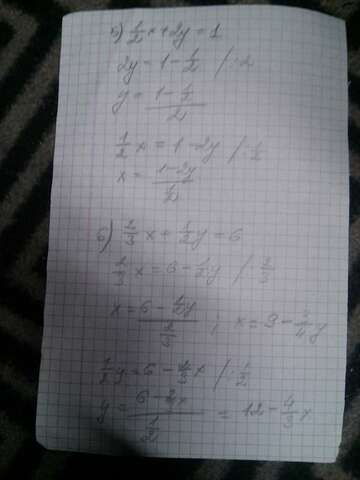 5) 1/2 x + 2y = 1
2y = 1 - 1/2 / : 2
y = (1 - 1/2) / 2
1/2 x = 1 - 2y / : 1/2
x = (1 - 2y) / (1/2)
6) 2/3 x + 1/2 y = 6
2/3 x = 6 - 1/2 y / : 2/3
x = (6 - 1/2 y) / (2/3) ; x = 9 - 3/4 y
1/2 y = 6 - 2/3 x / : 1/2
y = (6 - 2/3 x) / (1/2) = 12 - 4/3 x